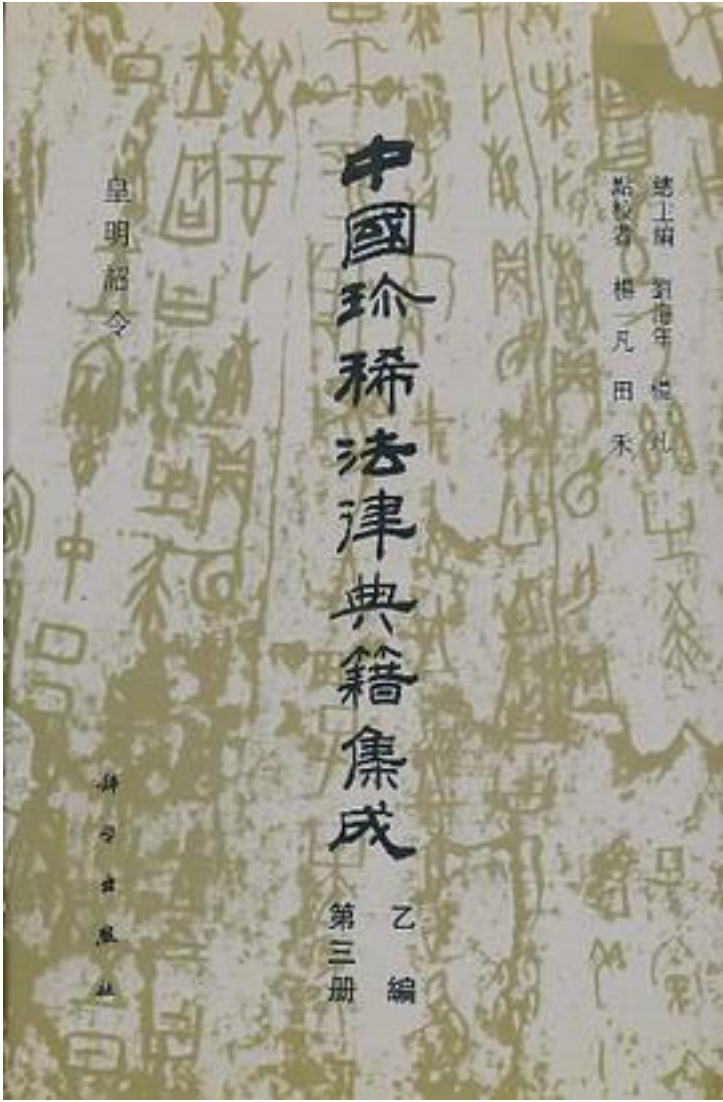 總主編 劉海年 楊一凡
點校者 楊一凡 田禾
中國珍稀法律典籍集成
乙編
第三册
皇明詔令
科学出版社